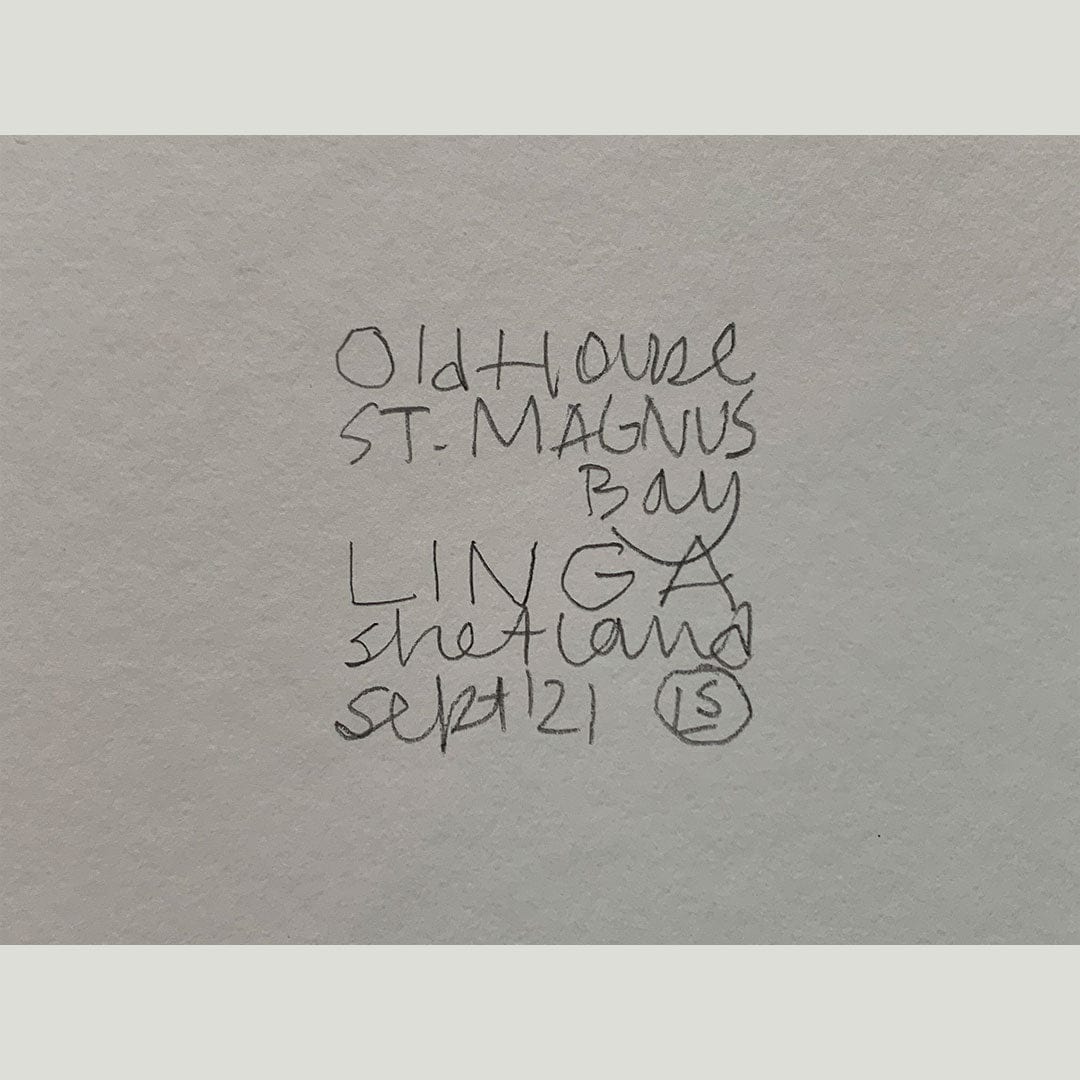 Old House
ST. MAGNUS
Bay
LINGA
shetland
sept '21 IS